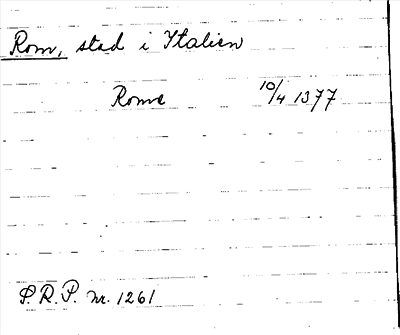 Rom, stad i Italien
Rome 10/4 1377
S.R.P. nr. 1261